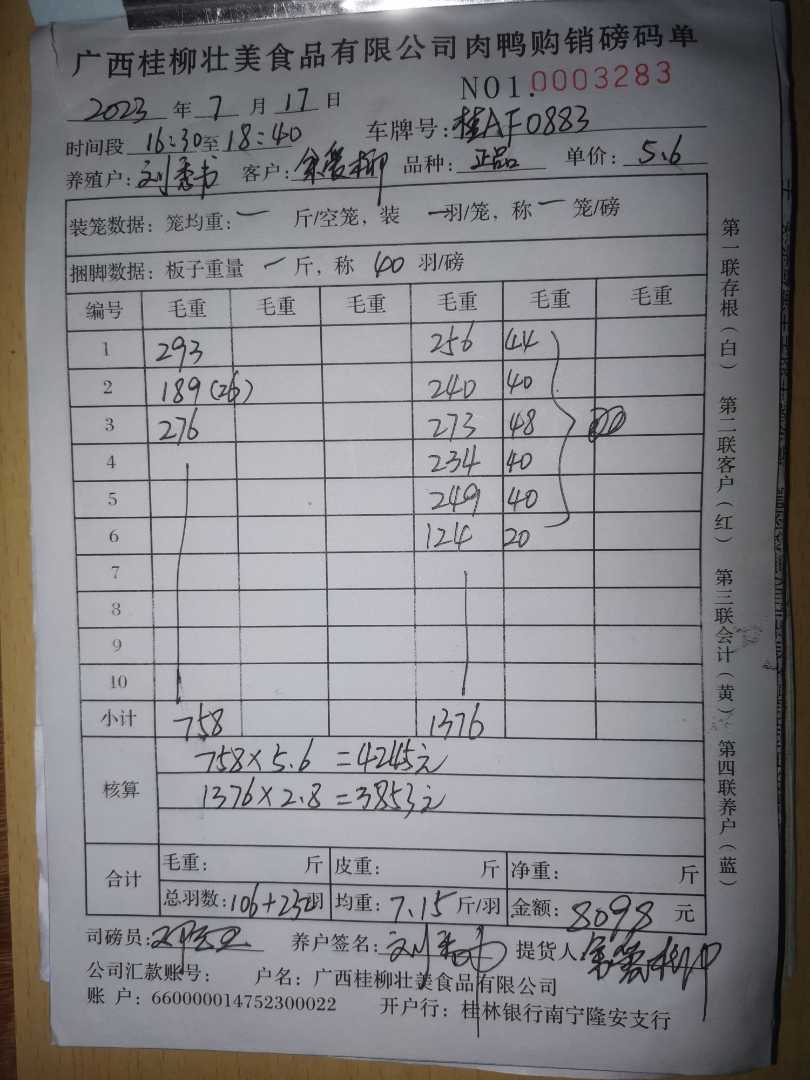 广西桂柳壮美食品有限公司肉鸭购销磅码单
NO1.0003283
2023 年 7 月 17 日
时间段 16:30至18:40 车牌号:桂AF0883
养殖户:刘秀书 客户: 品种:正品 单价:5.6
装笼数据:笼均重:一 斤/空笼,装 一羽/笼,称 一 笼/磅
捆脚数据:板子重量 一 斤,称 40 羽/磅
编号 毛重 毛重 毛重 毛重 毛重 毛重
1 293 256 44
2 189(26) 240 40
3 276 273 48
4 234 40
5 249 40
6 124 20
7
8
9
10
小计 758 1376
核算 758×5.6=4245元
1376×2.8=3853元
合计 毛重: 斤 皮重: 斤 净重: 斤
总羽数:106+232羽 均重:7.15斤/羽 金额:8098元
司磅员: 养户签名:刘秀书 提货人:
公司汇款账号: 户名:广西桂柳壮美食品有限公司
账 户:660000014752300022 开户行:桂林银行南宁隆安支行
第一联存根(白) 第二联客户(红) 第三联会计(黄) 第四联养户(蓝)